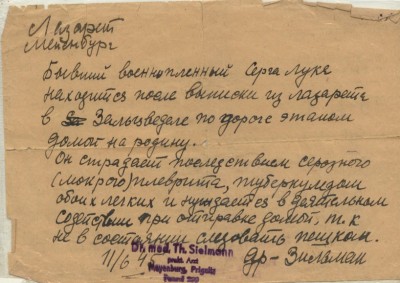 Лазарет
Мейенбург
Бывший военнопленный Серга Лука
находится после выписки из лазарета
в Зальцведеле по дороге этапом
домой на родину.
Он страдает последствием серозного
(мокрого) плеврита, туберкулезом
обоих легких и нуждается в деятельном
содействии при отправке домой, т.к
не в состоянии следовать пешком.
11/6 45 др- Зильман
Dr. med. Th. Sielmann
prakt. Arzt
Meyenburg, Prignitz